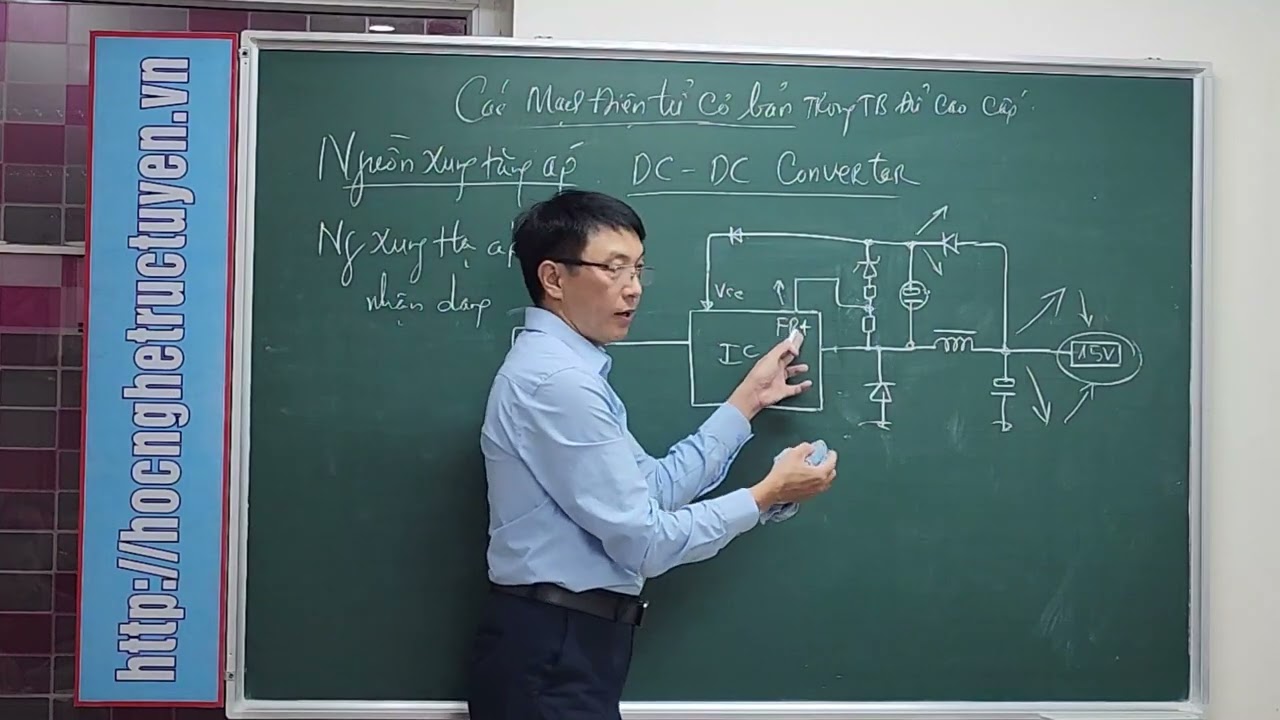 http://hocnghetructuyen.vn
Các Mạch Điện tử cơ bản Trong TB Đt cao cấp
Nguồn xung tăng áp DC-DC Converter
Ng xung Hạ áp
nhận dạng
Vcc
IC
15V